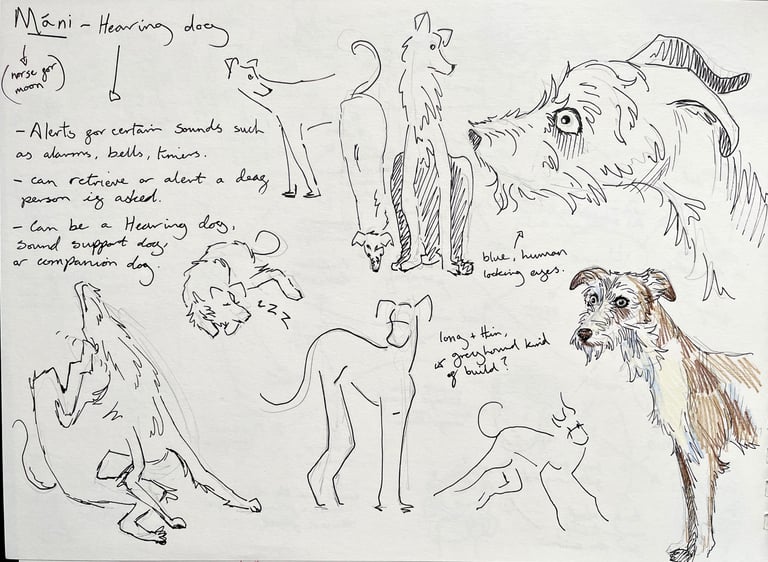 Máni - Hearing dog
(norse for
moon)
- Alerts for certain sounds such
as alarms, bells, timers.
- can retrieve or alert a deaf
person if asked.
- Can be a Hearing dog,
sound support dog,
or companion dog.
zzz
blue, human
looking eyes.
long + thin,
greyhound kind
of build?